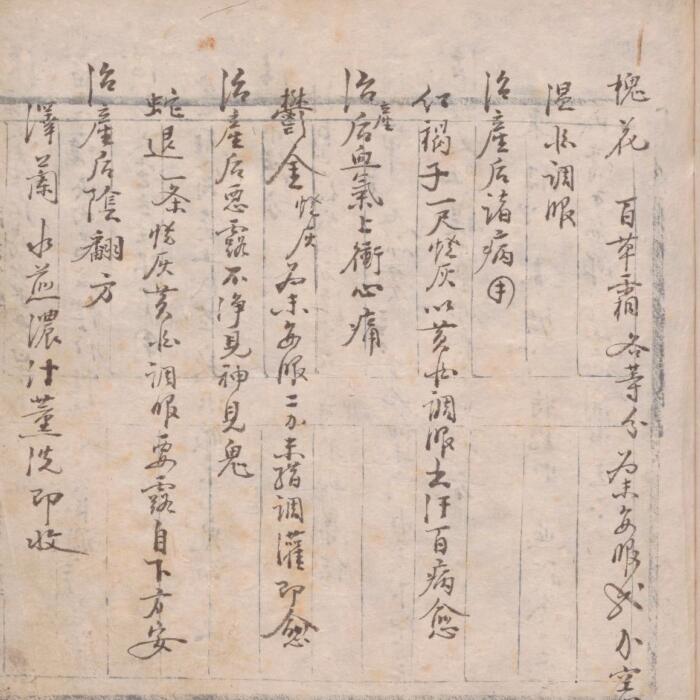 槐花　百草霜各等分為末每服 空
温酒調服
治產后諸病
红褐子一尺燒灰以黄酒調服出汗百病愈
治產后血氣上衝心痛
鬱金燒灰為末每服二分米醋調灌即愈
治產后惡露不浄見神見鬼
蛇退一条燒灰黄酒調服要露自下方安
治產后陰翻方
澤蘭水煎濃汁薰洗即收